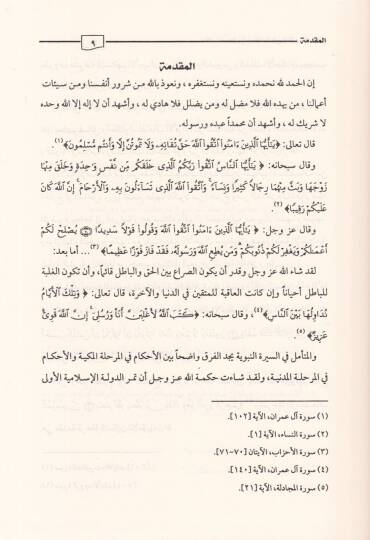 المقدمة
٩
المقدمة
إن الحمد لله نحمده ونستعينه ونستغفره، ونعوذ بالله من شرور أنفسنا ومن سيئات
أعمالنا، من يهده الله فلا مضل له ومن يضلل فلا هادي له، وأشهد أن لا إله إلا الله وحده
لا شريك له، وأشهد أن محمداً عبده ورسوله.
قال تعالى: ﴿ يَتَأَيُّهَا الَّذِينَ ءَامَنُوا اتَّقُوا اللَّهَ حَقَّ تُقَاتِهِ، وَلَا تَمُوتُنَّ إِلَّا وَأَنتُم مُّسْلِمُونَ﴾(١).
وقال سبحانه: ﴿ يَتَأَيُّهَا النَّاسُ اتَّقُوا رَبَّكُمُ الَّذِى خَلَقَكُم مِّن نَّفْسٍ وَاحِدَةٍ وَخَلَقَ مِنْهَا
زَوْجَهَا وَبَثَّ مِنْهُمَا رِجَالًا كَثِيرًا وَنِسَاءً وَاتَّقُوا اللَّهَ الَّذِى تَسَاءَلُونَ بِهِ، وَالْأَرْحَامَ إِنَّ اللَّهَ كَانَ
عَلَيْكُمْ رَقِيبًا﴾(٢).
وقال عز وجل: ﴿ يَتَأَيُّهَا الَّذِينَ ءَامَنُوا اتَّقُوا اللَّهَ وَقُولُوا قَوْلًا سَدِيدًا ۝ يُصْلِحْ لَكُمْ
أَعْمَالَكُمْ وَيَغْفِرْ لَكُمْ ذُنُوبَكُمْ وَمَن يُطِعِ اللَّهَ وَرَسُولَهُ، فَقَدْ فَازَ فَوْزًا عَظِيمًا﴾(٣)... أما بعد:
لقد شاء الله عز وجل وقدر أن يكون الصراع بين الحق والباطل قائماً، وأن تكون الغلبة
للباطل أحياناً وإن كانت العاقبة للمتقين في الدنيا والآخرة، قال تعالى: ﴿ وَتِلْكَ الْأَيَّامُ
نُدَاوِلُهَا بَيْنَ النَّاسِ﴾(٤)، وقال سبحانه: ﴿ كَتَبَ اللَّهُ لَأَغْلِبَنَّ أَنَا وَرُسُلِى إِنَّ اللَّهَ قَوِىٌّ
عَزِيزٌ﴾(٥).
والمتأمل في السيرة النبوية يجد الفرق واضحاً بين الأحكام في المرحلة المكية والأحكام
في المرحلة المدنية، ولقد شاءت حكمة الله عز وجل أن تمر الدولة الإسلامية الأولى
(١) سورة آل عمران، الآية [١٠٢].
(٢) سورة النساء، الآية [١].
(٣) سورة الأحزاب، الآيتان [٧٠-٧١].
(٤) سورة آل عمران، الآية [١٤٠].
(٥) سورة المجادلة، الآية [٢١].